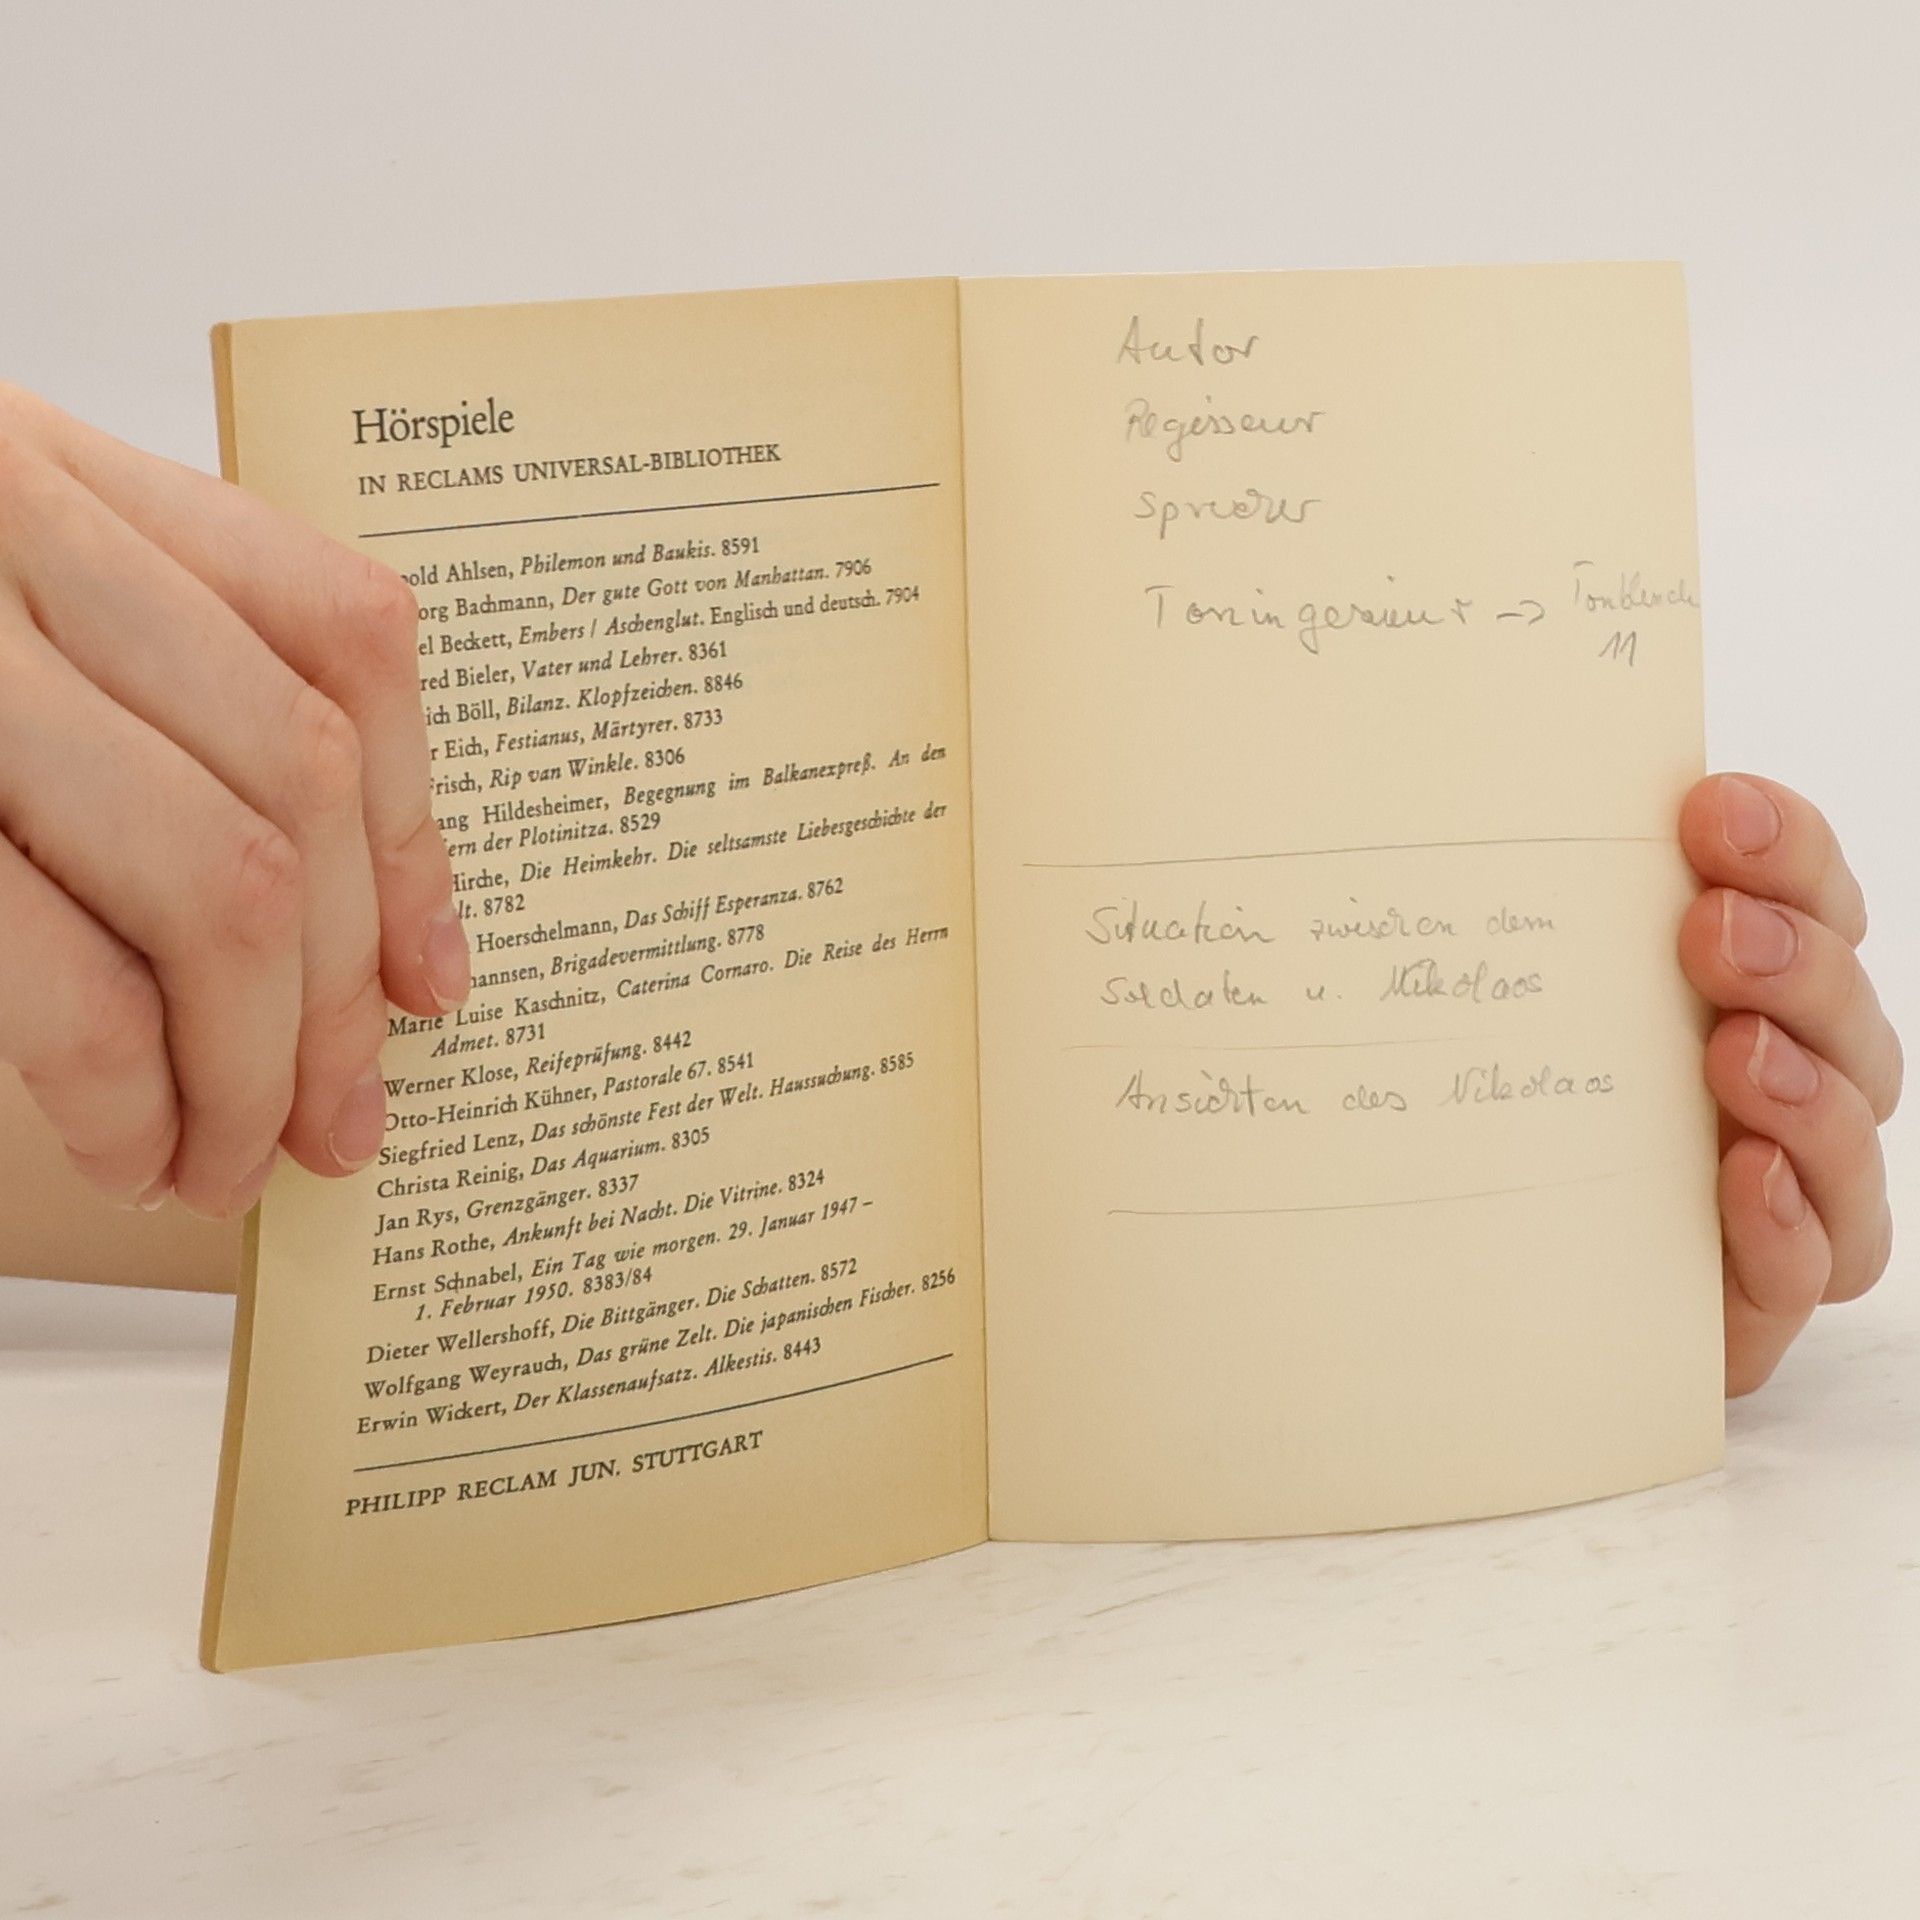 Hörspiele
IN RECLAMS UNIVERSAL-BIBLIOTHEK
old Ahlsen, Philemon und Baukis. 8591
org Bachmann, Der gute Gott von Manhattan. 7906
el Beckett, Embers / Aschenglut. Englisch und deutsch. 7904
red Bieler, Vater und Lehrer. 8361
ich Böll, Bilanz. Klopfzeichen. 8846
r Eich, Festianus, Märtyrer. 8733
risch, Rip van Winkle. 8306
ang Hildesheimer, Begegnung im Balkanexpreß. An den
ern der Plotinitza. 8529
Hirche, Die Heimkehr. Die seltsamste Liebesgeschichte der
lt. 8782
Hoerschelmann, Das Schiff Esperanza. 8762
hannsen, Brigadevermittlung. 8778
Marie Luise Kaschnitz, Caterina Cornaro. Die Reise des Herrn
Admet. 8731
Werner Klose, Reifeprüfung. 8442
Otto-Heinrich Kühner, Pastorale 67. 8541
Siegfried Lenz, Das schönste Fest der Welt. Haussuchung. 8585
Christa Reinig, Das Aquarium. 8305
Jan Rys, Grenzgänger. 8337
Hans Rothe, Ankunft bei Nacht. Die Vitrine. 8324
Ernst Schnabel, Ein Tag wie morgen. 29. Januar 1947 –
1. Februar 1950. 8383/84
Dieter Wellershoff, Die Bittgänger. Die Schatten. 8572
Wolfgang Weyrauch, Das grüne Zelt. Die japanischen Fischer. 8256
Erwin Wickert, Der Klassenaufsatz. Alkestis. 8443
PHILIPP RECLAM JUN. STUTTGART
Autor
Regisseur
Sprecher
Toningenieur ->
11
Situation zwischen dem
Soldaten u. Nikolaos
Ansichten des Nikolaos